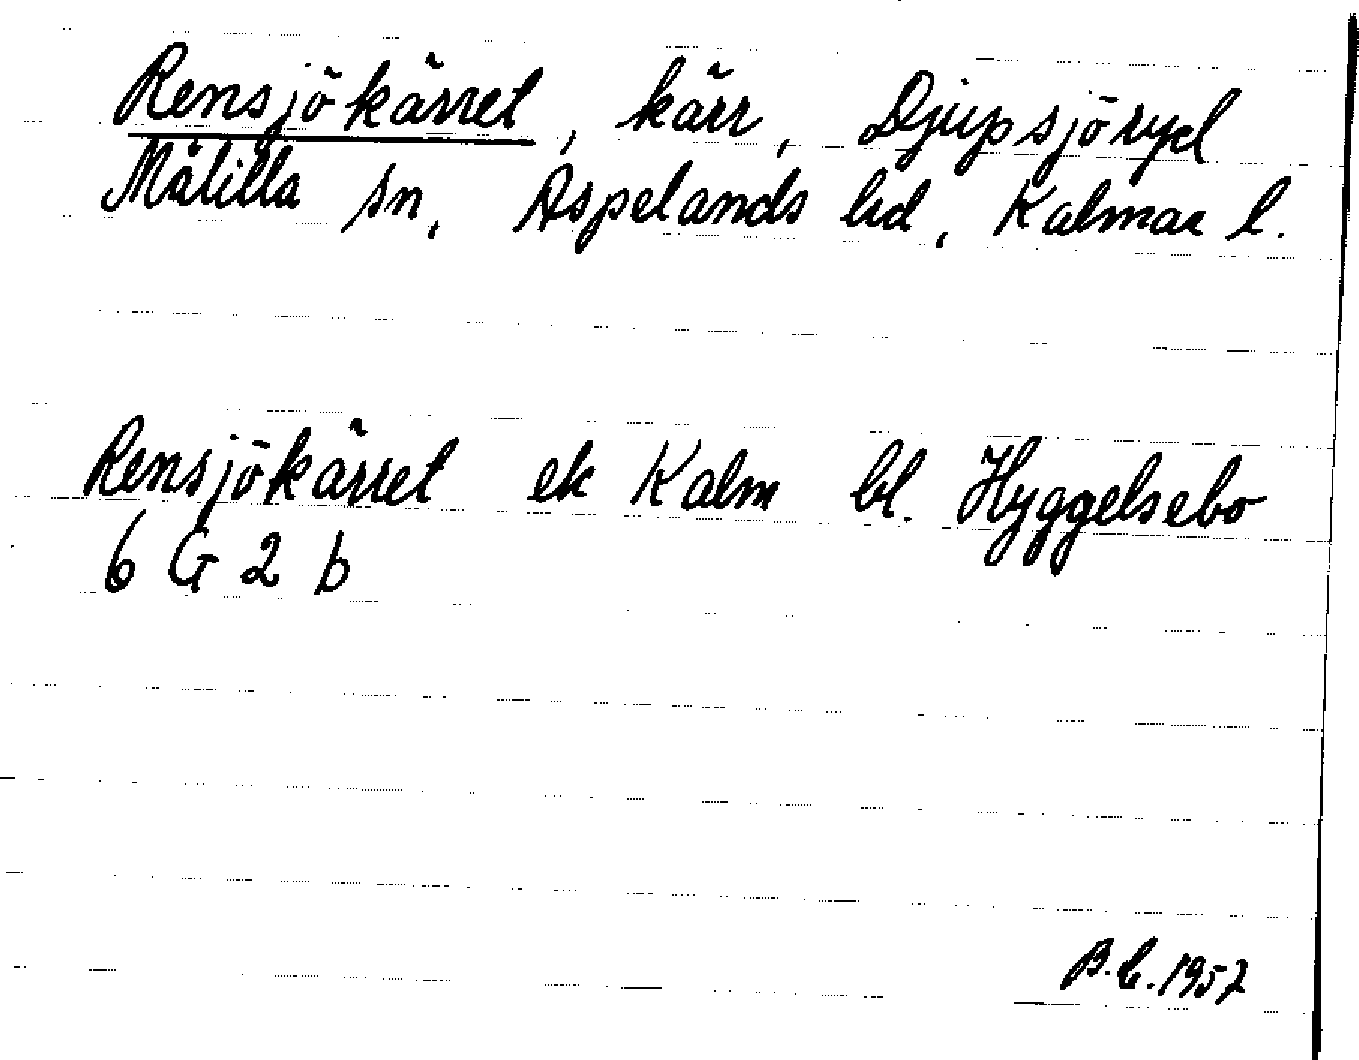 Rensjökärret, kärr, Djupsjöryd
Målilla sn, Aspelands hd, Kalmar l.
Rensjökärret ek Kalm bl. Hyggelsebo
6 G 2 b
B.C. 1957